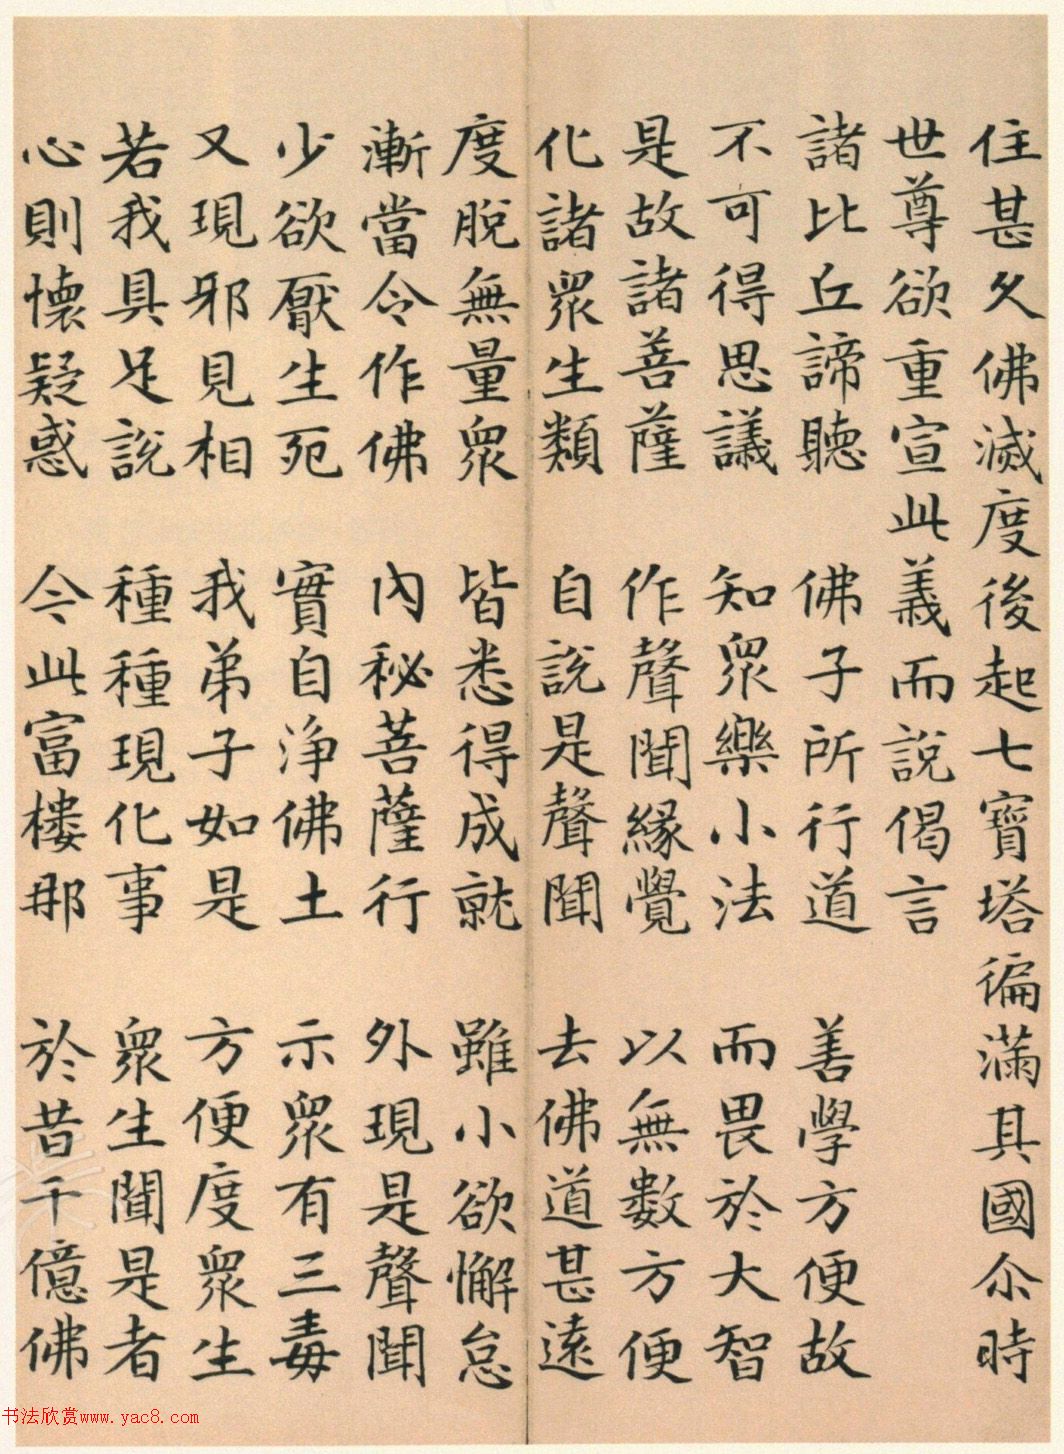 住甚久佛滅度後起七寶塔徧滿其國尒時
世尊欲重宣此義而說偈言
諸比丘諦聽 佛子所行道 善學方便故
不可得思議 知眾樂小法 而畏於大智
是故諸菩薩 作聲聞緣覺 以無數方便
化諸眾生類 自說是聲聞 去佛道甚遠
度脫無量眾 皆悉得成就 雖小欲懈怠
漸當令作佛 內秘菩薩行 外現是聲聞
少欲厭生死 實自淨佛土 示眾有三毒
又現邪見相 我弟子如是 方便度眾生
若我具足說 種種現化事 眾生聞是者
心則懷疑惑 今此富樓那 於昔千億佛
书法欣赏www.yac8.com